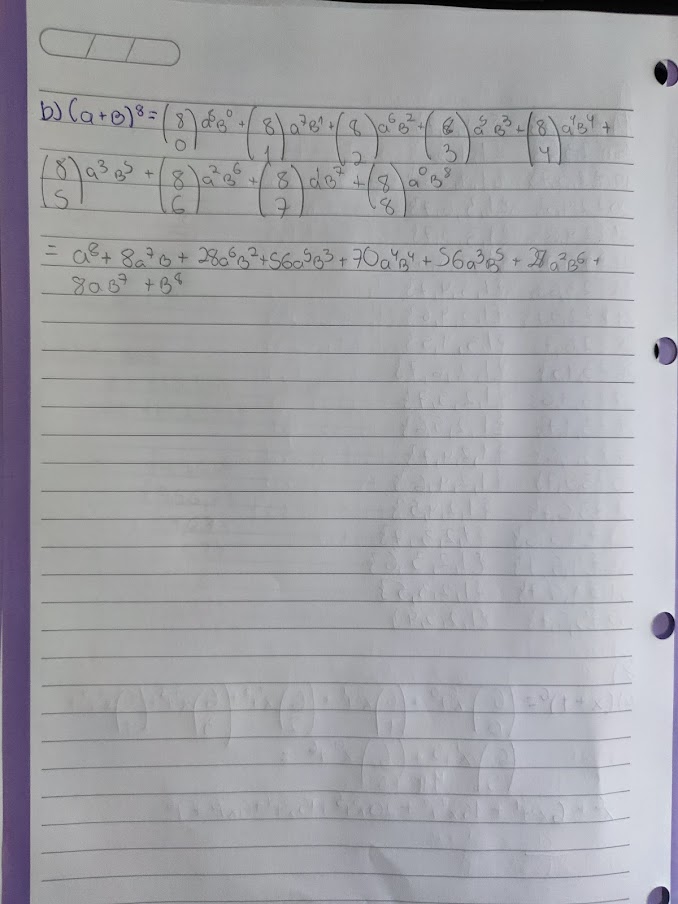 b) (a+B)⁸ = (8 0) a⁸B⁰ + (8 1) a⁷B¹ + (8 2) a⁶B² + (8 3) a⁵B³ + (8 4) a⁴B⁴ +
(8 5) a³B⁵ + (8 6) a²B⁶ + (8 7) a¹B⁷ + (8 8) a⁰B⁸
= a⁸ + 8a⁷B + 28a⁶B² + 56a⁵B³ + 70a⁴B⁴ + 56a³B⁵ + 28a²B⁶ +
8aB⁷ + B⁸